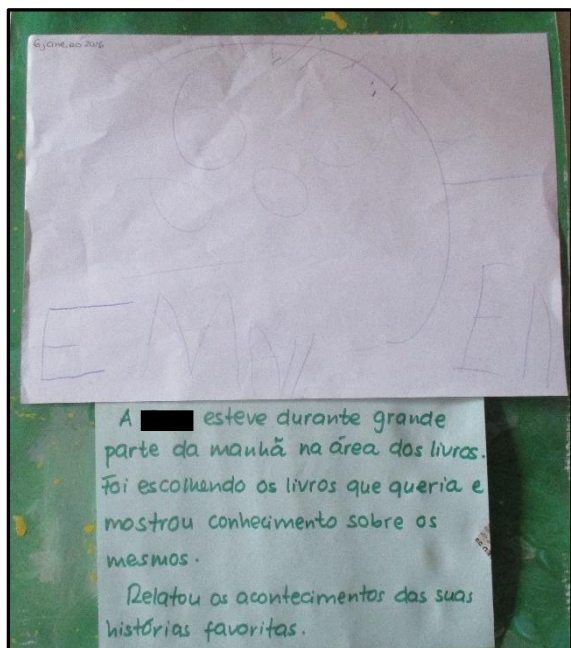 2016
E M
E
A esteve durante grande
parte da manhã na área dos livros.
Foi escolhendo os livros que queria e
mostrou conhecimento sobre os
mesmos.
Relatou os acontecimentos das suas
histórias favoritas.